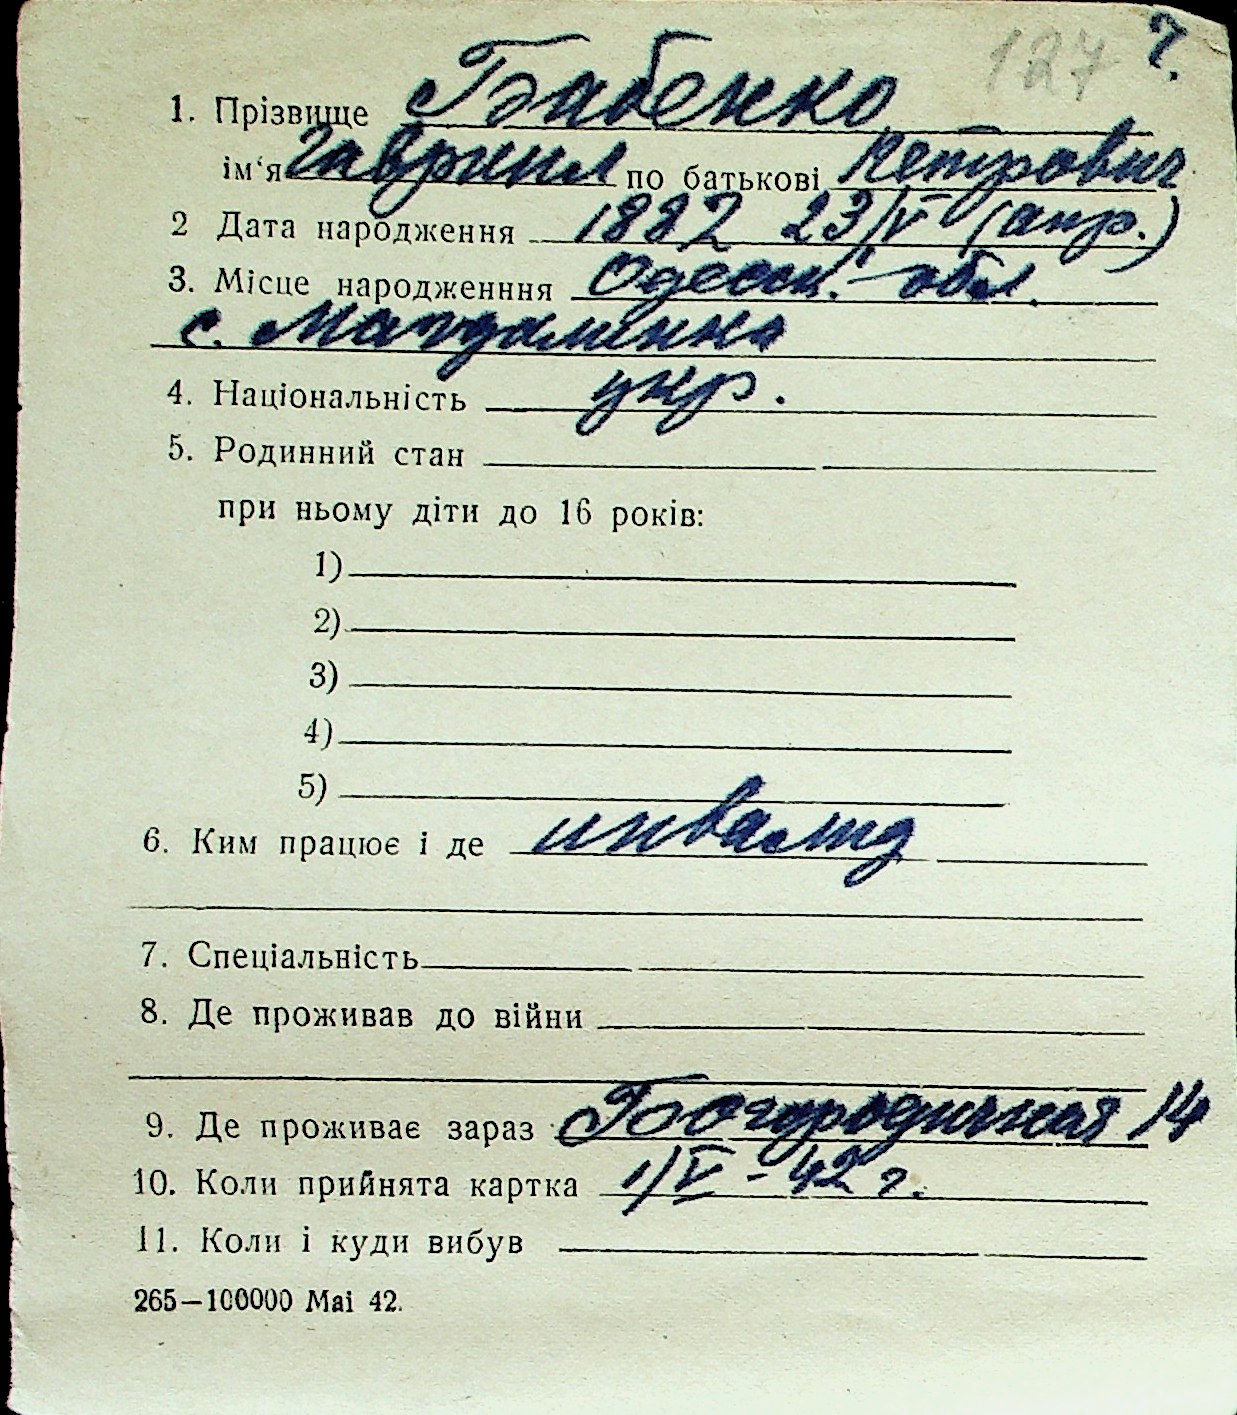 127 7.
1. Прізвище Бабенко
ім'я Гавриил по батькові Петрович
2 Дата народження 1882 23/V (апр.)
3. Місце народженння Одесск. обл.
с. Магдалинка
4. Національність укр.
5. Родинний стан
при ньому діти до 16 років:
1)
2)
3)
4)
5)
6. Ким працює і де инвалид
7. Спеціальність
8. Де проживав до війни
9. Де проживає зараз 14
10. Коли прийнята картка 1/V - 42 г.
11. Коли і куди вибув
265—100000 Маі 42.